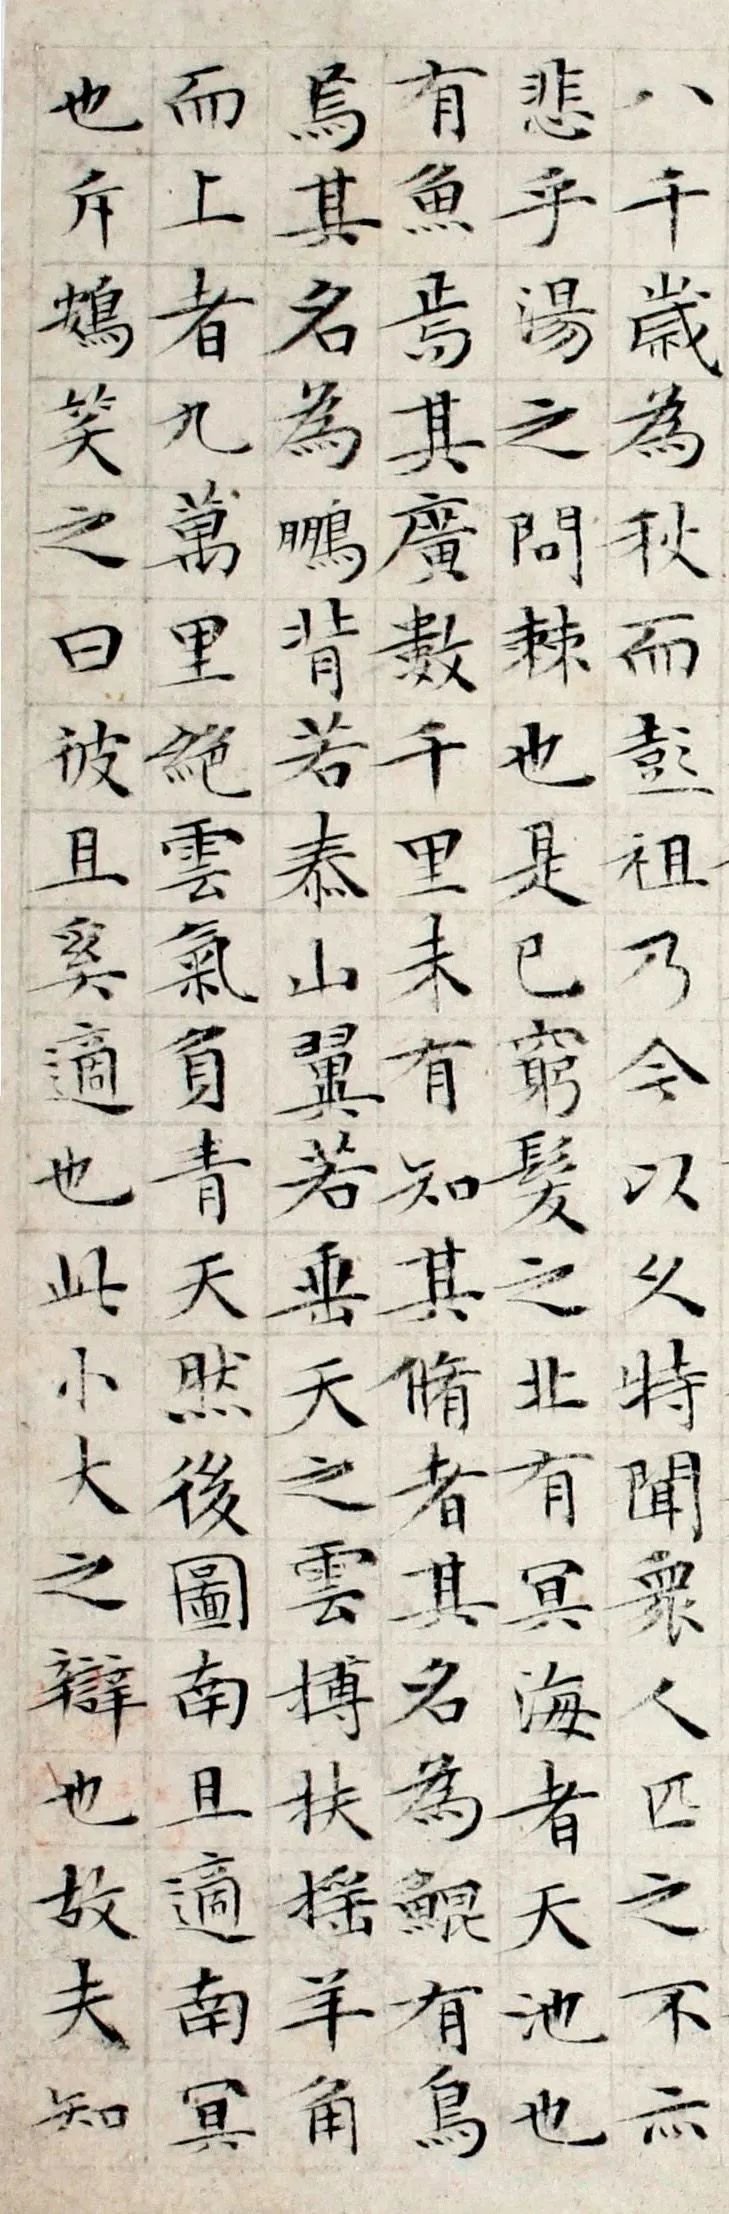 八千歲為秋而彭祖乃今以久特聞衆人匹之不亦
悲乎湯之問棘也是已窮髮之北有冥海者天池也
有魚焉其廣數千里未有知其脩者其名為鯤有鳥
焉其名為鵬背若泰山翼若垂天之雲搏扶搖羊角
而上者九萬里絕雲氣負青天然後圖南且適南冥
也斥鴳笑之曰彼且奚適也此小大之辯也故夫知